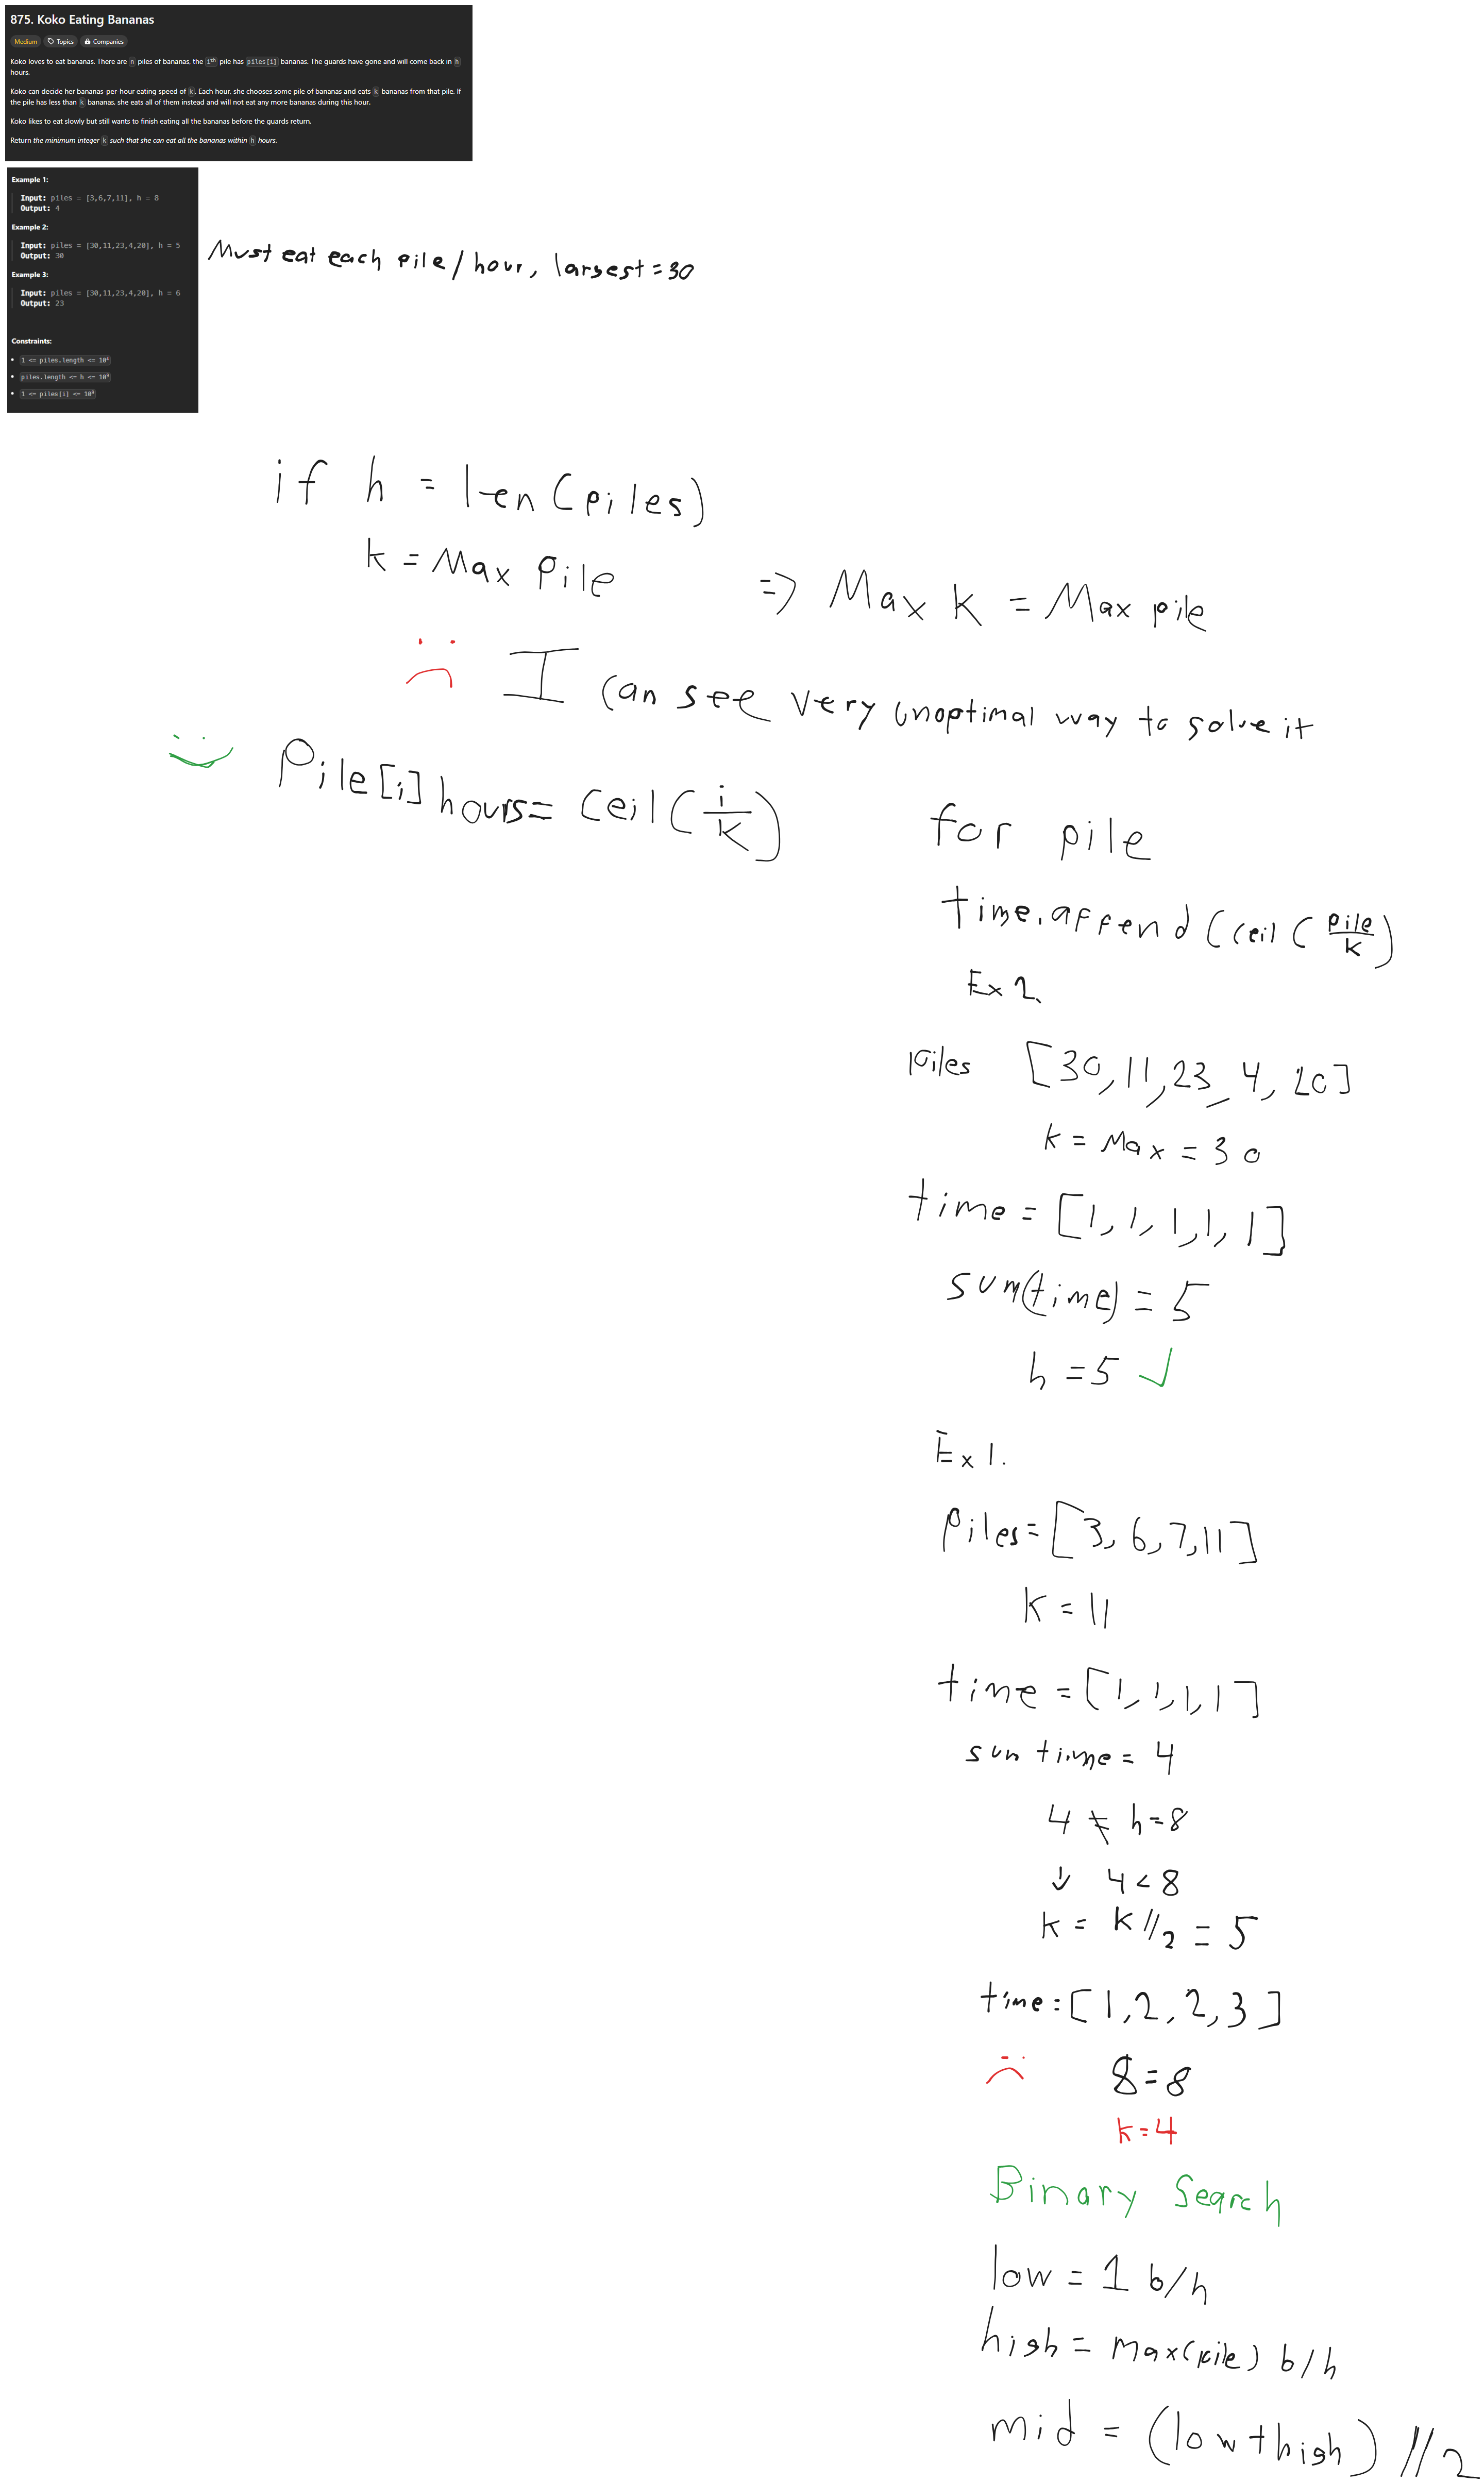 875. Koko Eating Bananas
Medium Topics Companies
Koko loves to eat bananas. There are n piles of bananas, the ith pile has piles[i] bananas. The guards have gone and will come back in h
hours.
Koko can decide her bananas-per-hour eating speed of k. Each hour, she chooses some pile of bananas and eats k bananas from that pile. If
the pile has less than k bananas, she eats all of them instead and will not eat any more bananas during this hour.
Koko likes to eat slowly but still wants to finish eating all the bananas before the guards return.
Return the minimum integer k such that she can eat all the bananas within h hours.
Example 1:
Input: piles = [3,6,7,11], h = 8
Output: 4
Example 2:
Input: piles = [30,11,23,4,20], h = 5
Output: 30
Example 3:
Input: piles = [30,11,23,4,20], h = 6
Output: 23
Constraints:
• 1 <= piles.length <= 10⁴
• piles.length <= h <= 10⁹
• 1 <= piles[i] <= 10⁹
Must eat each pile/hour, largest = 30
if h = len(piles)
k = Max Pile => Max K = Max pile
I can see very unoptimal way to solve it
Pile[i] hours = ceil(i/k)
for pile
time.append(ceil(pile/k)
Ex 2.
piles [30,11,23,4,20]
k = Max = 30
time = [1,1,1,1,1]
sum(time) = 5
h = 5 ✓
Ex 1.
Piles = [3,6,7,11]
k = 11
time = [1,1,1,1]
sum time = 4
4 ≠ h=8
↓ 4 < 8
k = k//2 = 5
time = [1,2,2,3]
8 = 8
k = 4
Binary Search
low = 1 b/h
high = max(pile) b/h
mid = (low+high)//2